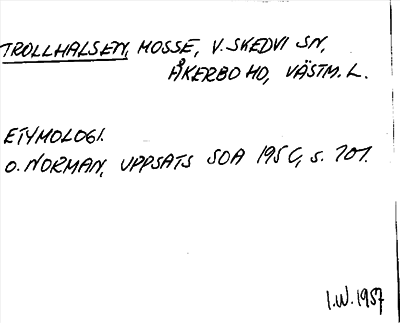 TROLLHALSEN, MOSSE, V. SKEDVI SN,
ÅKERBO HD, VÄSTM. L.
ETYMOLOGI.
O. NORMAN, UPPSATS SOA 195 C, S. 101.
I.W. 1957